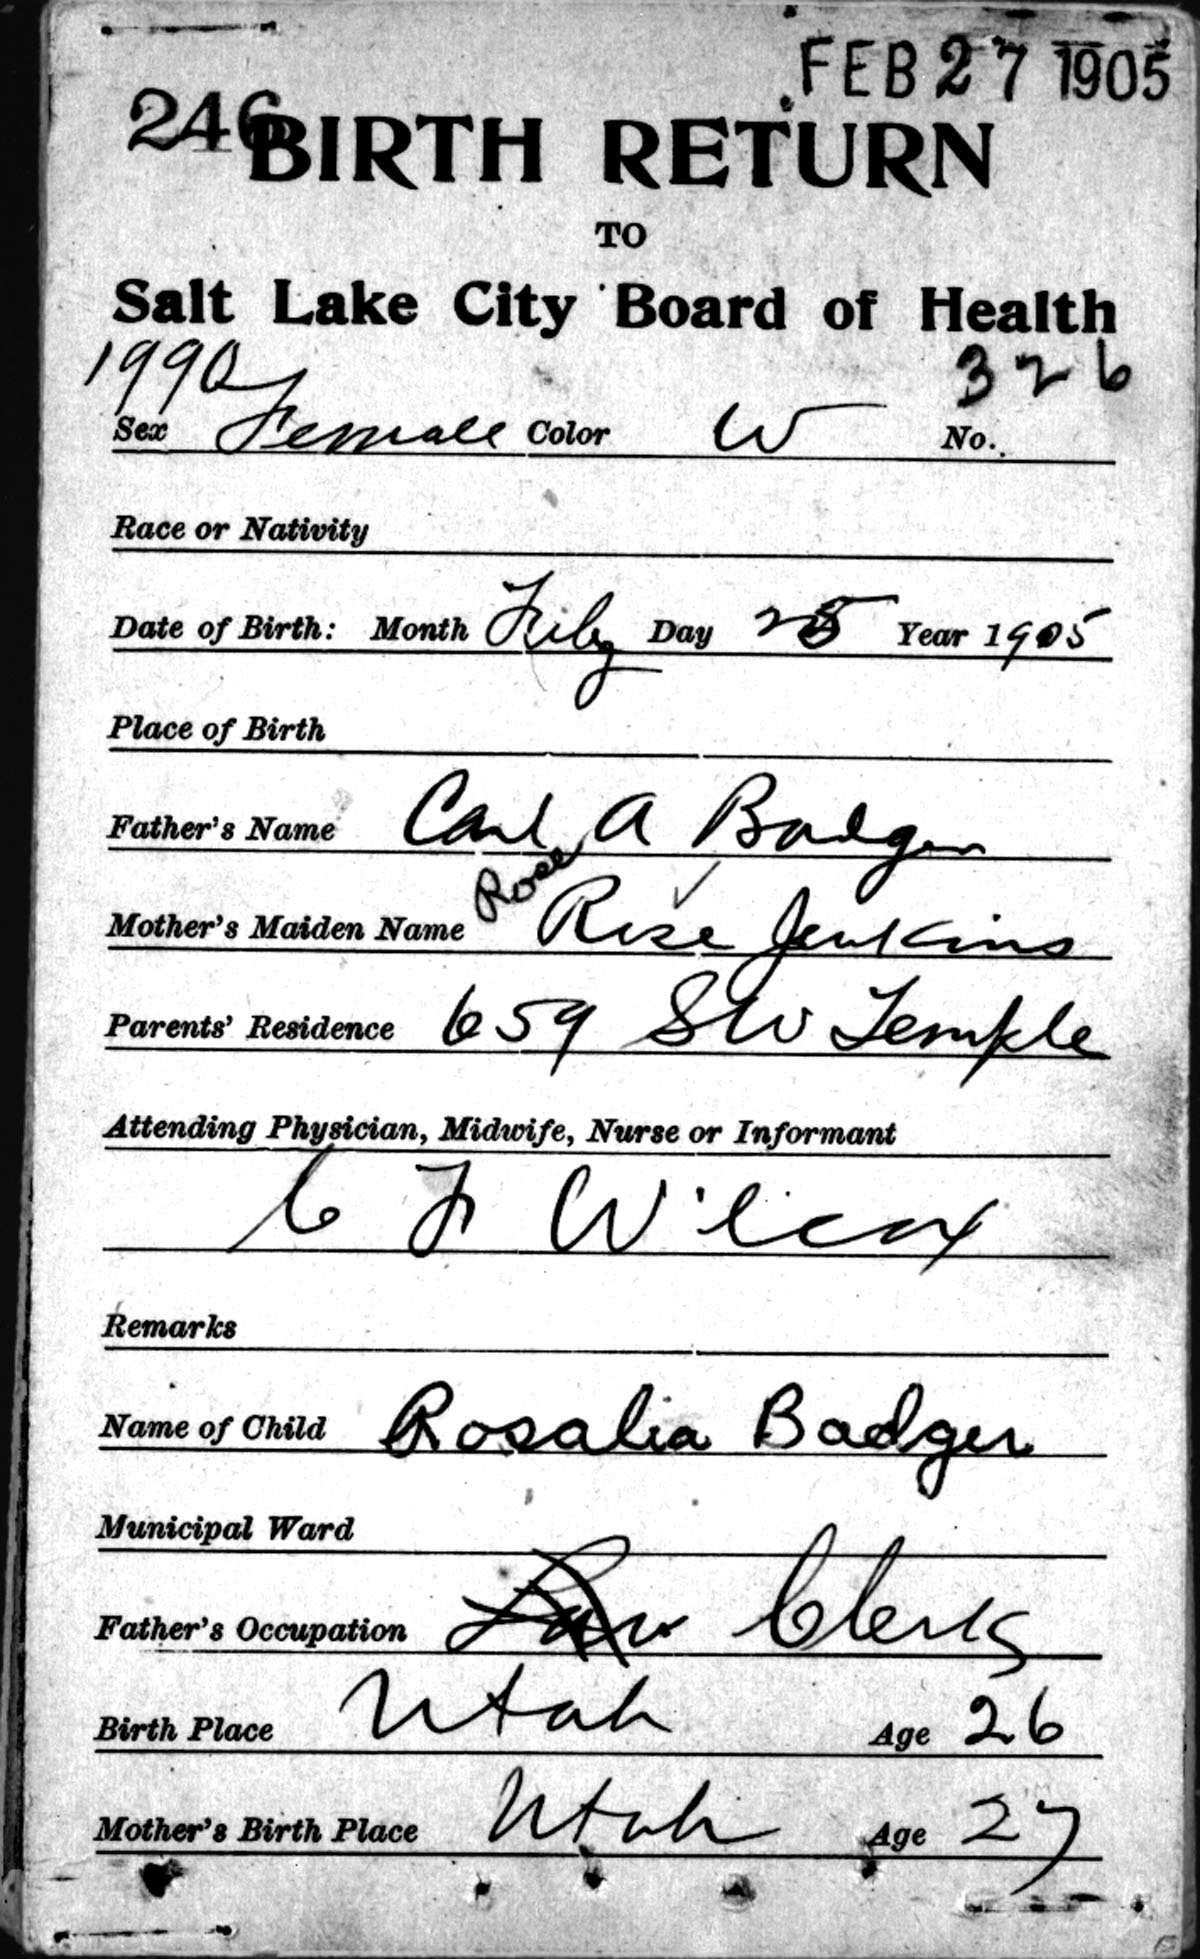 FEB 27 1905
246 BIRTH RETURN
TO
Salt Lake City Board of Health
1990 326
Sex Female Color W No.
Race or Nativity
Date of Birth: Month Feby Day 25 Year 1905
Place of Birth
Father's Name Carl A Badger
Rose
Mother's Maiden Name Rose Jenkins
Parents' Residence 659 S W Temple
Attending Physician, Midwife, Nurse or Informant
C F Wilcox
Remarks
Name of Child Rosalia Badger
Municipal Ward
Father's Occupation Law Clerk
Birth Place Utah Age 26
Mother's Birth Place Utah Age 27